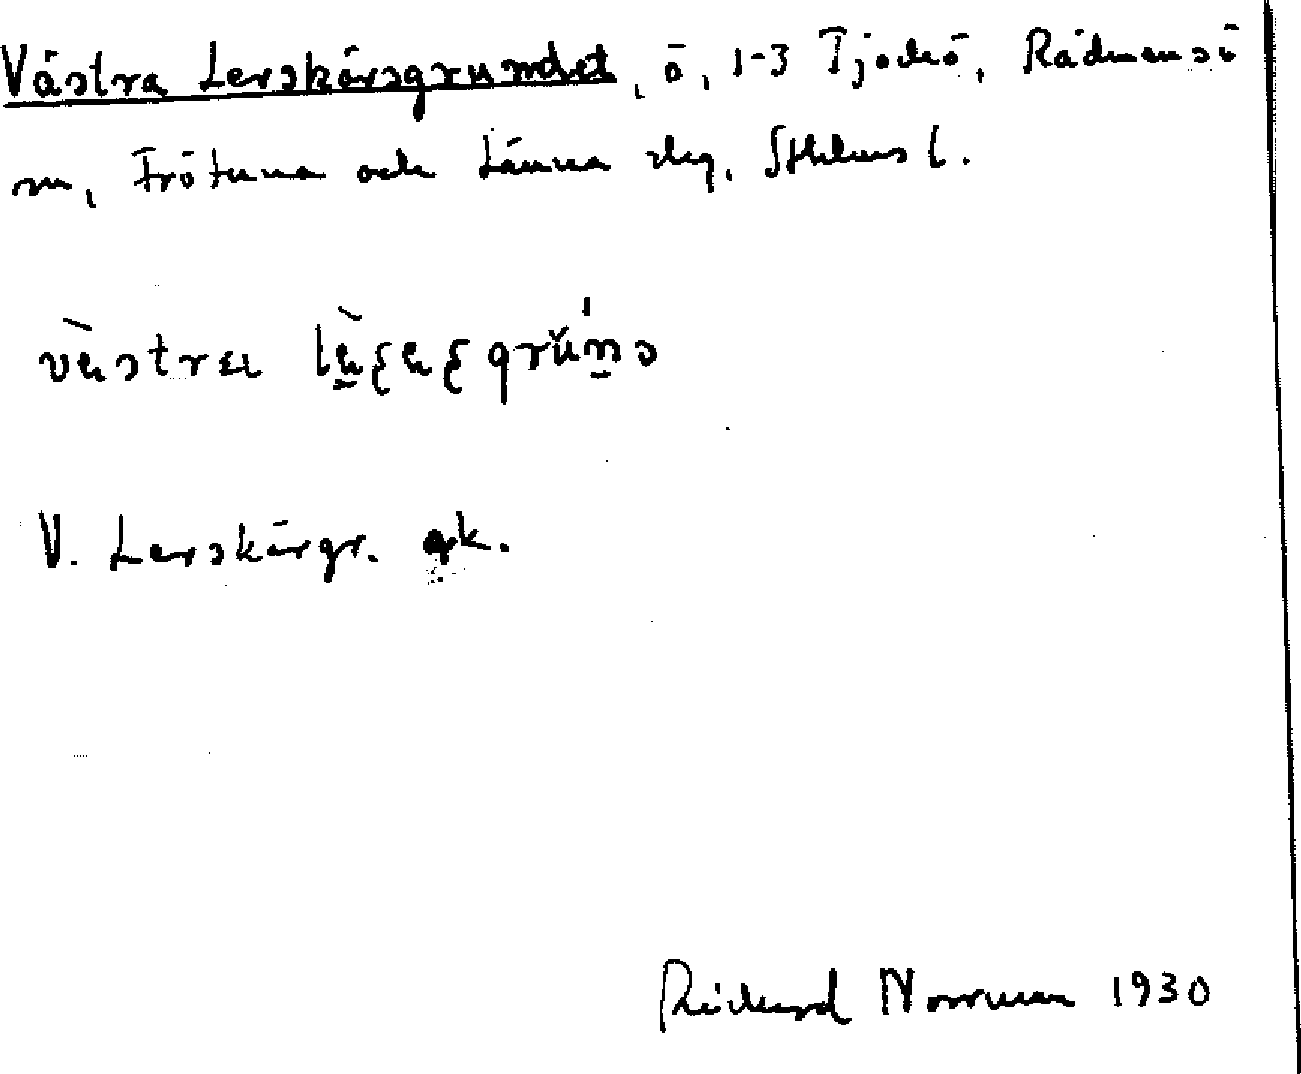 Västra Lerskärsgrundet, ö, 1-3 Tjockö, Rådmansö
sn, Frötuna och Länna skg, Sthlms l.
västra
V. Lerskärgr. gk.
Rickard Norrman 1930